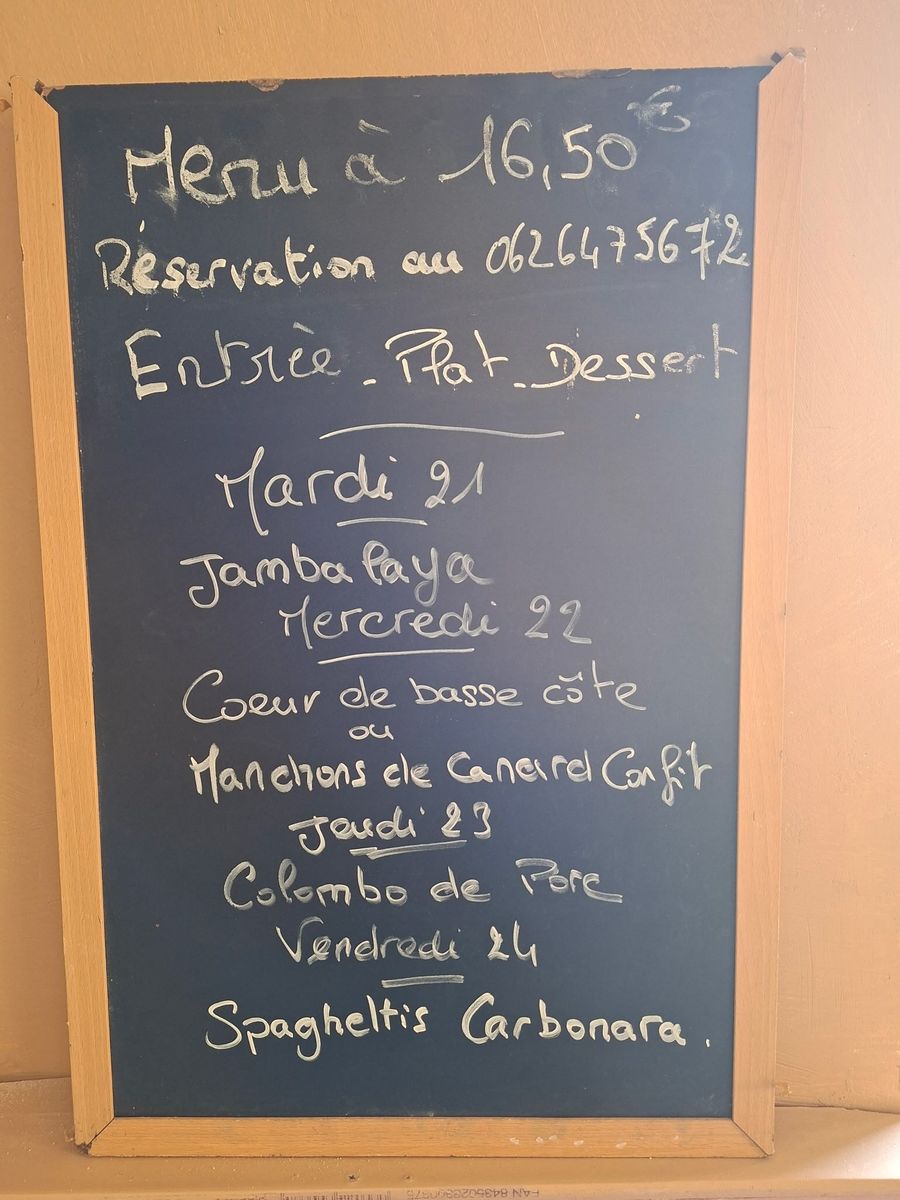 Menu à 16,50€
Réservation au 0626475672
Entrèe - Plat - Dessert
Mardi 21
Jambalaya
Mercredi 22
Coeur de basse côte
ou
Manchons de Canard Confit
Jeudi 23
Colombo de Porc
Vendredi 24
Spaghettis Carbonara.